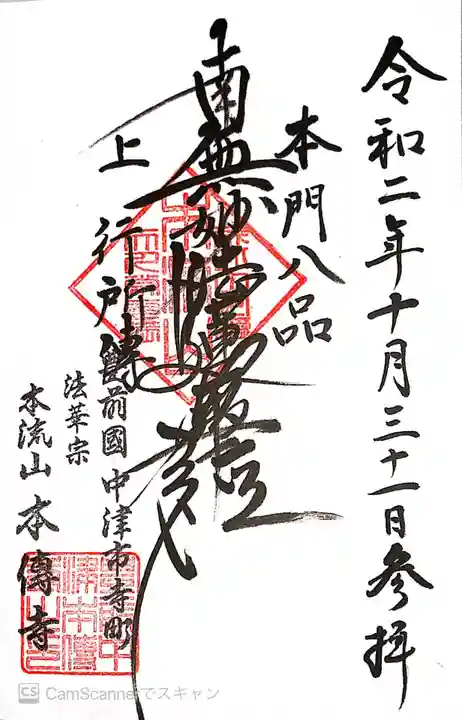 令和二年十月三十一日参拝
本門八品
南無妙法蓮華経
上行所傳
豊前國中津市寺町
法華宗
本流山本傳寺
CS CamScannerでスキャン